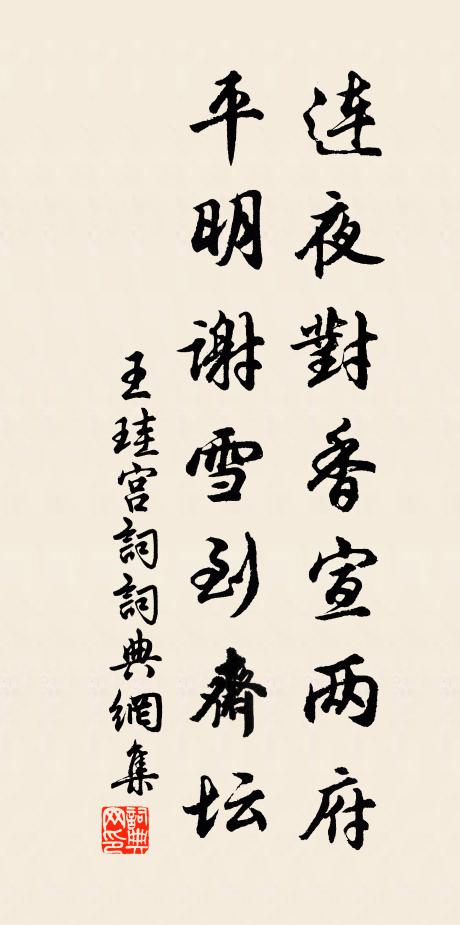 连夜對香宣两府
平明谢雪到齋坛
王珪宫詞詞典網集
詞典网印